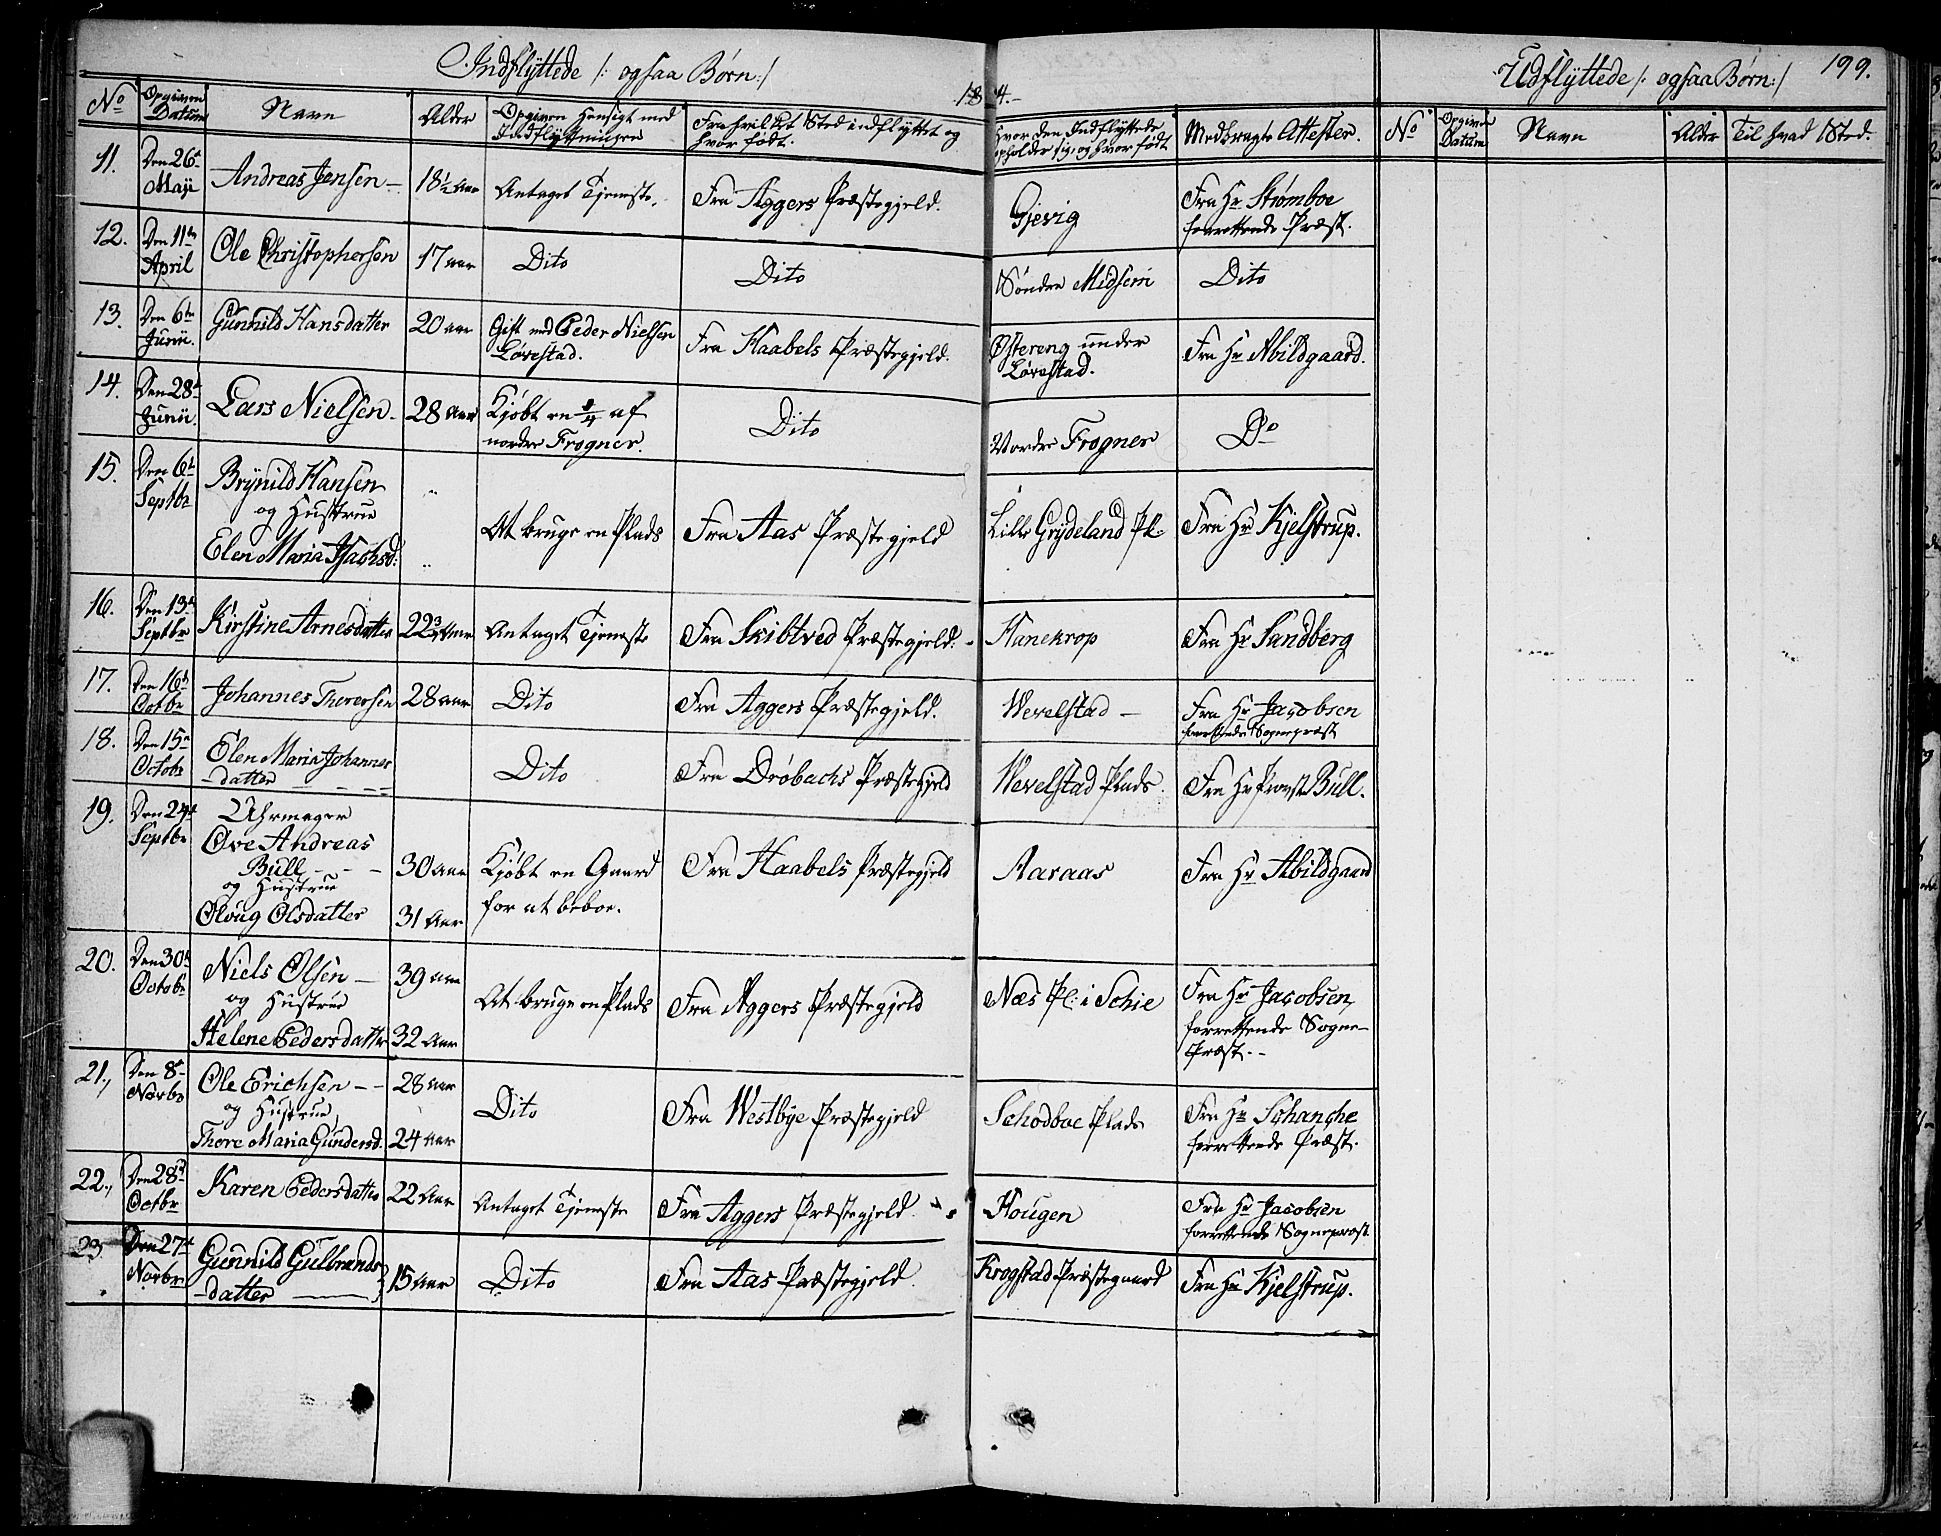 Indflyttede /: ogsaa Børn :/
Udflyttede /: ogsaa Børn :/ 199.
No Opgiven Datum Navn Alder Opgiven Hensigt med Indflyttningen Fra hvilket Sted indflyttet og hvor født. Hvor den Indflyttede opholder sig, og hvor født Medbragte Attester. No Opgiven Datum Navn Alder Til hvad Sted.
11. Den 26t Maji Andreas Jensen 18½ Aar Antaget Tjeneste. Fra Aggers Præstegjeld. Gjevig Fra Hr Strømboe forrettende Præst.
12. Den 11te April Ole Christophersen 17 aar Dito Dito Søndre Midsem Dito
13. Den 6te Junii. Gunnild Hansdatter 20 aar Gift med Peder Nielsen Løvestad. Fra Haabels Præstegjeld. Østereng under Løvestad. Fra Hr Abildgaard.
14. Den 28t Junii. Lars Nielsen 28 Aar Kjøbt en ¼ af nordre Frogner. Dito Nordre Frogner Do
15. Den 6t Septbr Brynild Hansen og Hustrue Elen Maria Isachsd: At bruge en Plads Fra Aas Præstegjeld Lille Grydeland Pl: Fra Hr Kjelstrup.
16. Den 13t Septbr Kirstine Arnesdatter 22¾ Aar Antaget Tjeneste Fra Skibtved Præstegjeld. Hanekrop Fra Hr Sandberg
17. Den 16t Octbr Johannes Thoresen 28 aar Dito Fra Aggers Præstegjeld. Wevelstad Fra Hr Jacobsen forrettende Sognepræst
18. Den 15t Octobr Elen Maria Johannesdatter Dito Fra Drøbachs Præstegjeld Wevelstad Plads. Fra Hr Provst Bull.
19. Den 24t Septbr Uhrmager Ove Andreas Bull og Hustrue Oloug Olsdatter 30 aar 31 Aar Kjøbt en Gaard for at beboe. Fra Haabels Præstegjeld Aaraas Fra Hr Abildgaard
20. Den 30t Octobr Niels Olsen og Hustrue Helene Pedersdatter 39 aar 32 Aar At bruge en Plads Fra Aggers Præstegjeld Næs Pl: i Schie Fra Hr Jacobsen, forrettende Sogne-Præst.
21. Den 8t Novbr Ole Erichsen og Hustrue Thore Maria Gundersd. 28 aar 24 aar Dito Fra Westbye Præstegjeld Schodboe Plads Fra Hr Schanche forrettende Præst.
22. Den 28t Octbr Karen Pedersdatter 22 Aar Antaget Tjeneste Fra Aggers Præstegjeld. Hougen Fra Hr Jacobsen forrettende Sognepræst.
23. Den 27t Novbr Gunnild Gulbrandsdatter 15 Aar Dito Fra Aas Præstegjeld. Krogstad Præstegaard Fra Hr Kjelstrup.